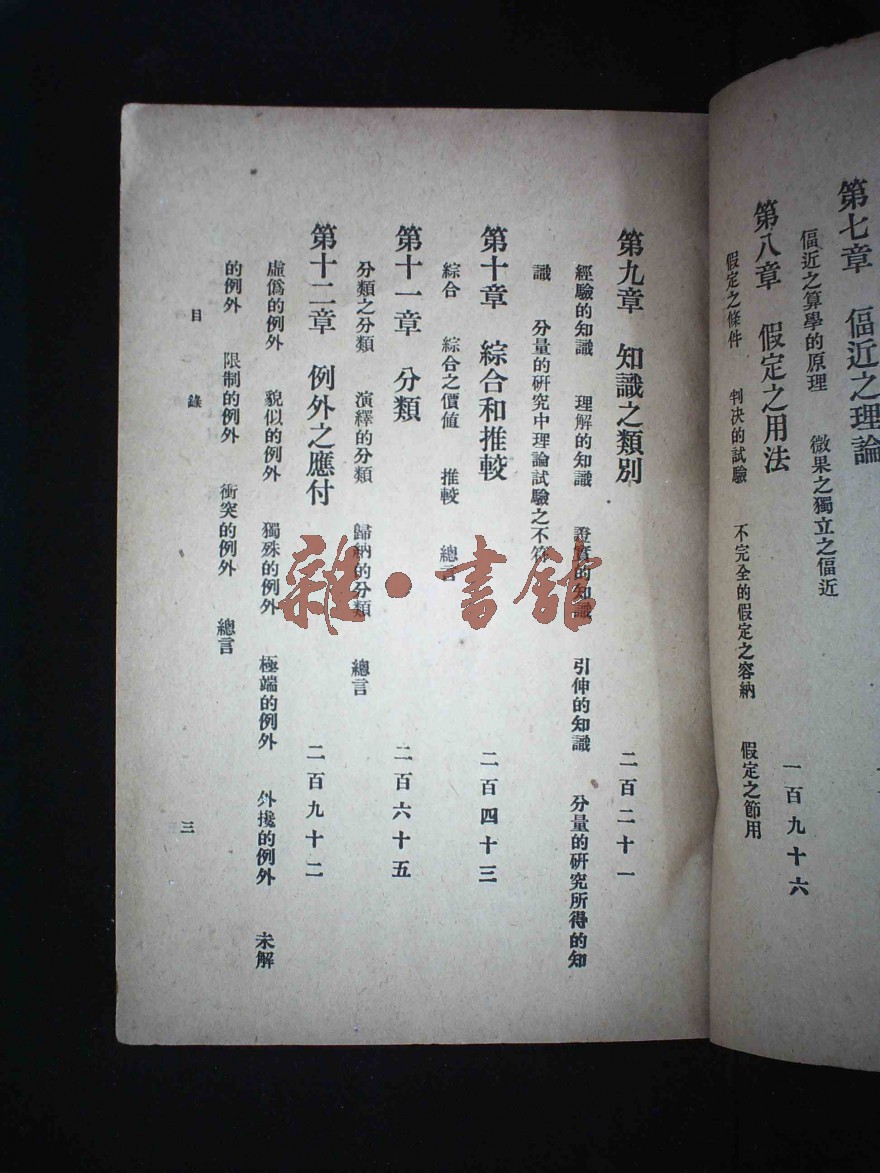 第七章　偪近之理論
偪近之算學的原理　微果之獨立之偪近
第八章　假定之用法　一百九十六
假定之條件　判決的試驗　不完全的假定之容納　假定之節用
第九章　知識之類別　二百二十一
經驗的知識　理解的知識　證實的知識　引伸的知識　分量的研究所得的知
識　分量的研究中理論試驗之不符
第十章　綜合和推較　二百四十三
綜合　綜合之價值　推較　總言
第十一章　分類　二百六十五
分類之分類　演繹的分類　歸納的分類　總言
第十二章　例外之應付　二百九十二
虛僞的例外　貌似的例外　獨殊的例外　極端的例外　外攙的例外　未解
的例外　限制的例外　衝突的例外　總言
目錄　三
雜·書館